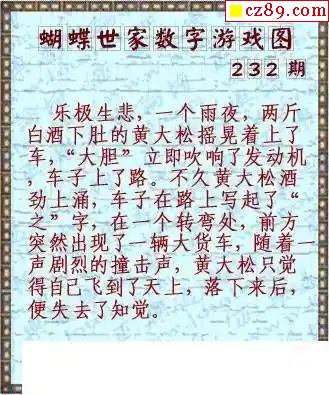 cz89.com
蝴蝶世家数字游戏图
232期
乐极生悲，一个雨夜，两斤
白酒下肚的黄大松摇晃着上了
车，“大胆”立即吹响了发动机
，车子上了路。不久黄大松酒
劲上涌，车子在路上写起了“
之”字，在一个转弯处，前方
突然出现了一辆大货车，随着一
声剧烈的撞击声，黄大松只觉
得自己飞到了天上，落下来后，
便失去了知觉。